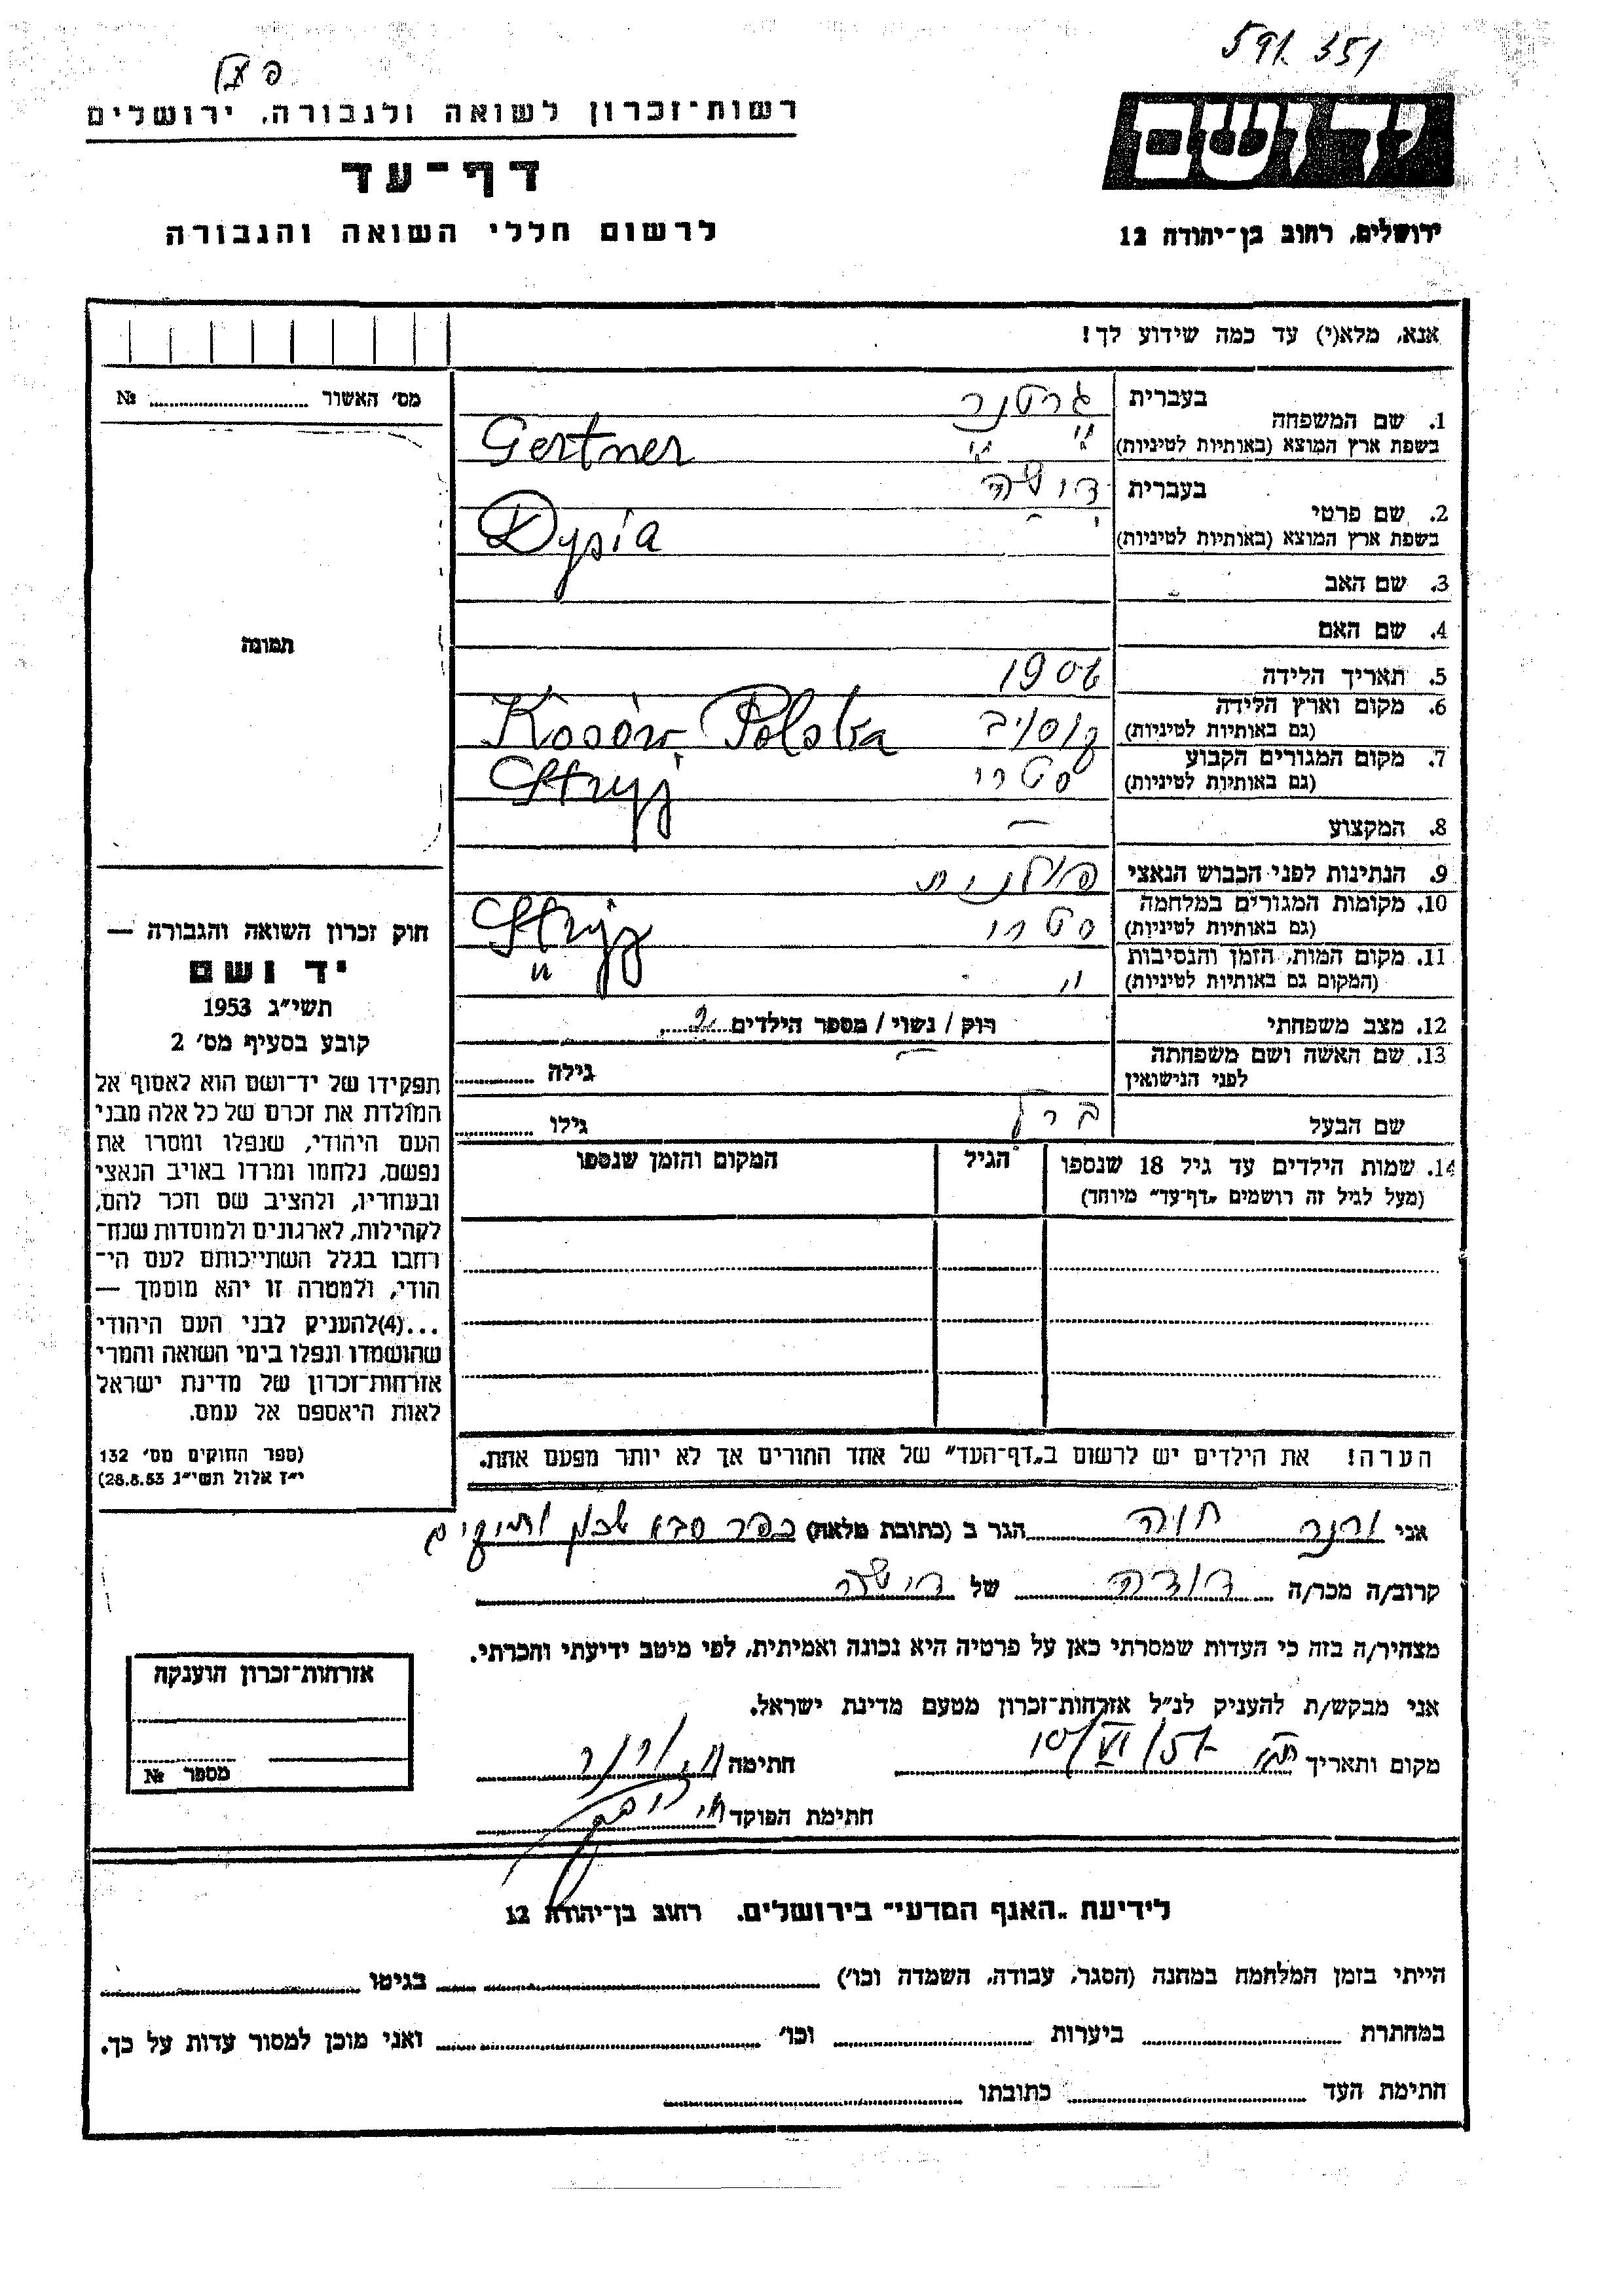 591351
רשות־זכרון לשואה ולגבורה, ירושלים
דף־עד
לרשום חללי השואה והגבורה
יד ושם
ירושלים, רחוב בן־יהודה 12
אנא, מלא(י) עד כמה שידוע לך!
מס׳ האשור № 
1. שם המשפחה בעברית גרטנר
בשפת ארץ המוצא (באותיות לטיניות) Gertner
2. שם פרטי בעברית דושה
בשפת ארץ המוצא (באותיות לטיניות) Dysia
3. שם האב
4. שם האם
5. תאריך הלידה
6. מקום וארץ הלידה (גם באותיות לטיניות) קוסוב Kosów, Polska
7. מקום המגורים הקבוע (גם באותיות לטיניות) סטרי Stryj
8. המקצוע —
9. הנתינות לפני הכבוש הנאצי פולנית
10. מקומות המגורים במלחמה (גם באותיות לטיניות) סטרי Stryj
11. מקום המות, הזמן והנסיבות (המקום גם באותיות לטיניות) " "
12. מצב משפחתי רוק / נשוי / מספר הילדים 2
13. שם האשה ושם משפחתה לפני הנישואין — גילה
שם הבעל גילו
14. שמות הילדים עד גיל 18 שנספו (מעל לגיל זה רושמים „דף־עד" מיוחד) הגיל המקום והזמן שנספו
הערה! את הילדים יש לרשום ב„דף־העד" של אחד ההורים אך לא יותר מפעם אחת.
תמונה
חוק זכרון השואה והגבורה —
יד ושם
תשי״ג 1953
קובע בסעיף מס׳ 2
תפקידו של יד־ושם הוא לאסוף אל
המולדת את זכרם של כל אלה מבני
העם היהודי, שנפלו ומסרו את
נפשם, נלחמו ומרדו באויב הנאצי
ובעוזריו, ולהציב שם וזכר להם,
לקהילות, לארגונים ולמוסדות שנח־
רבו בגלל השתייכותם לעם הי־
הודי, ולמטרה זו יהא מוסמך —
...(4)להעניק לבני העם היהודי
שהושמדו ונפלו בימי השואה והמרי
אזרחות־זכרון של מדינת ישראל
לאות היאספם אל עמם.
(ספר החוקים מס׳ 132
י״ז אלול תשי״ג 28.8.53)
אני ורנר חוה הגר ב (כתובת מלאה) כפר סבא שכון ותיקים
קרוב/ה מכר/ה דודה של דושה
מצהיר/ה בזה כי העדות שמסרתי כאן על פרטיה היא נכונה ואמיתית, לפי מיטב ידיעתי והכרתי.
אני מבקש/ת להעניק לנ״ל אזרחות־זכרון מטעם מדינת ישראל.
מקום ותאריך 10/VI/57 חתימה ח. ורנר
חתימת הפוקד
אזרחות־זכרון הוענקה
מספר №
לידיעת „האגף המדעי" בירושלים, רחוב בן־יהודה 12
הייתי בזמן המלחמה במחנה (הסגר, עבודה, השמדה וכו׳) בגיטו
במחתרת ביערות וכו׳ ואני מוכן למסור עדות על כך.
חתימת העד כתובתו